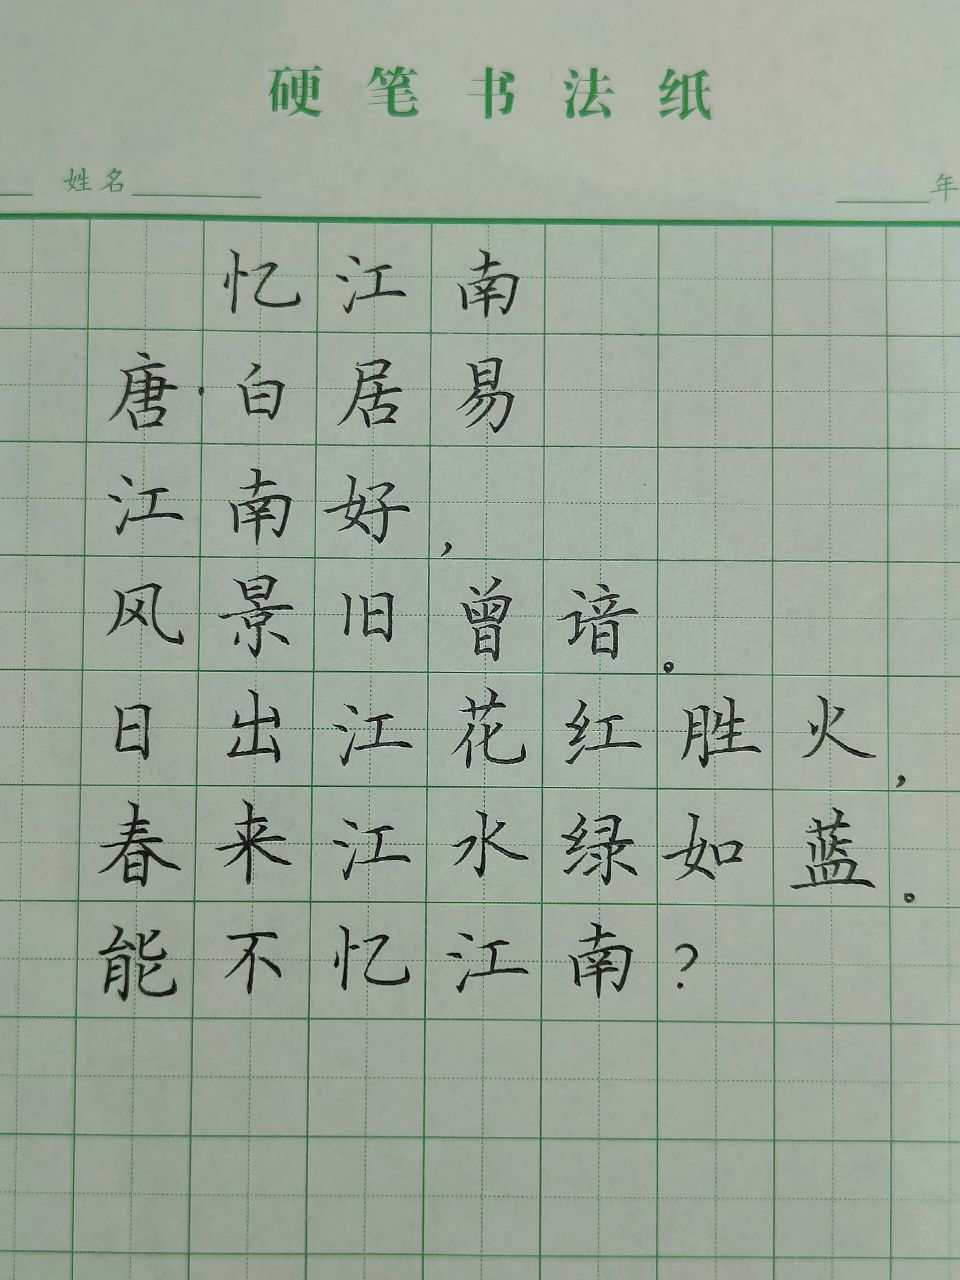 硬笔书法纸
姓名 年
忆江南
唐·白居易
江南好，
风景旧曾谙。
日出江花红胜火，
春来江水绿如蓝。
能不忆江南？